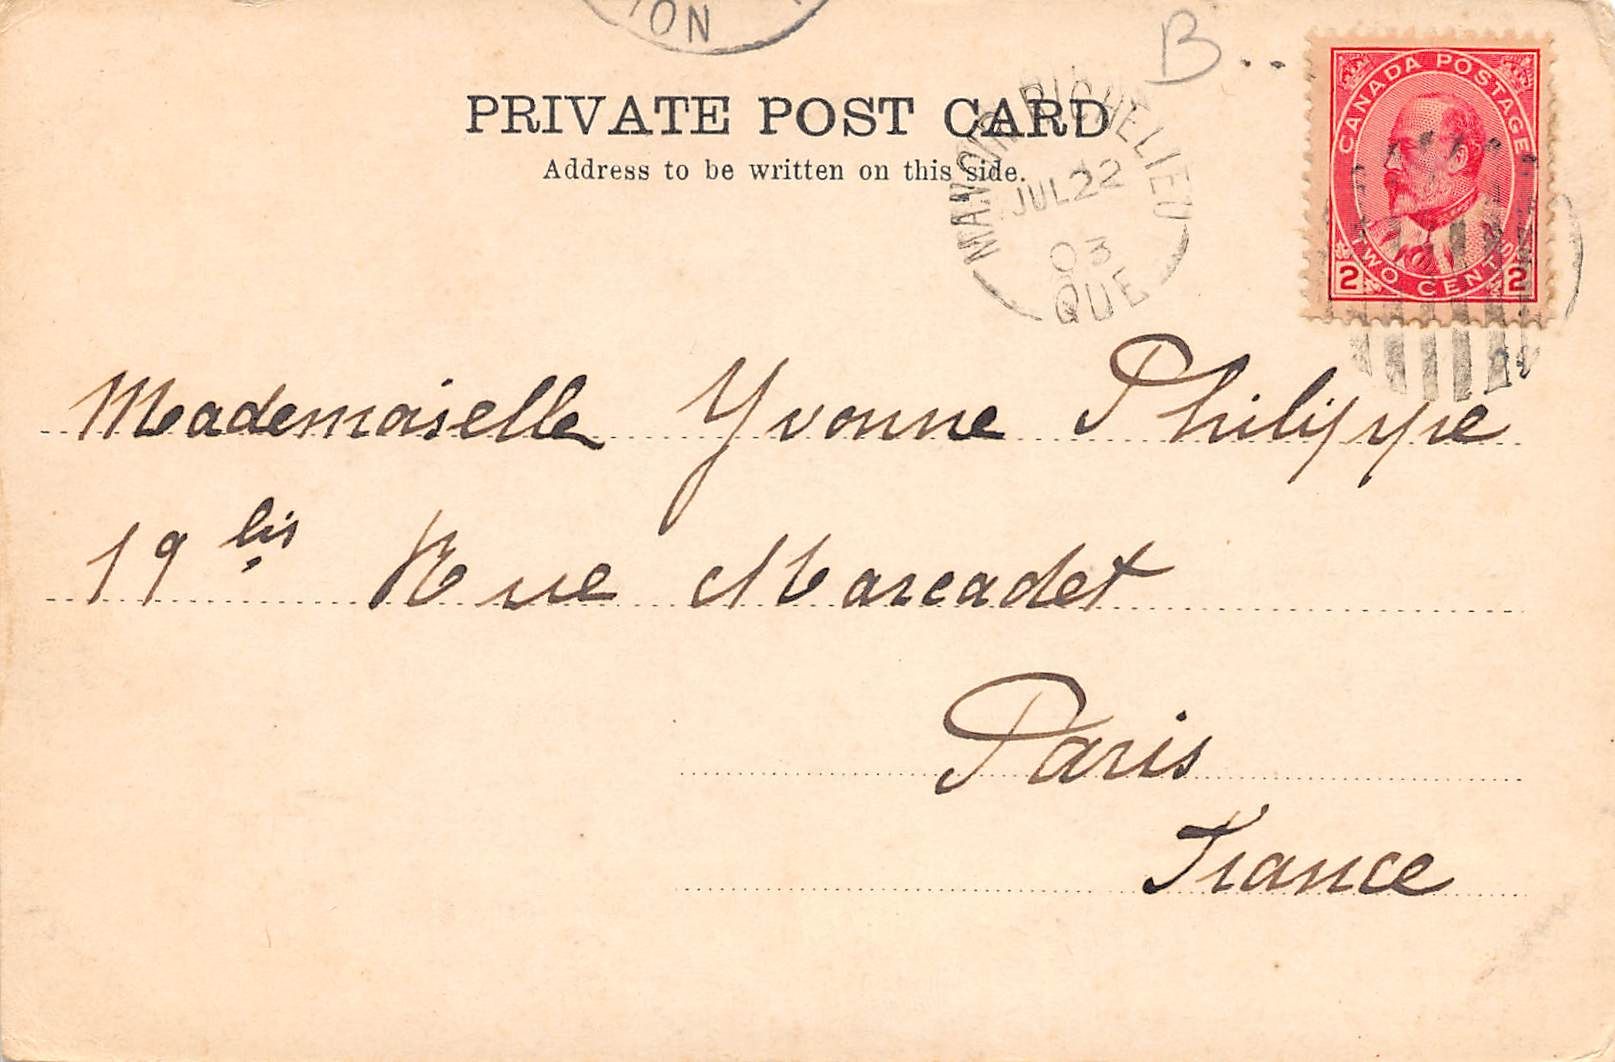 ION
B..
PRIVATE POST CARD
Address to be written on this side.
MANOIR RICHELIEU
JUL 22
03
QUE
CANADA POSTAGE
TWO CENTS
2 2
Mademoiselle Yvonne Philippe
19 bis Rue Marcadet
Paris
France